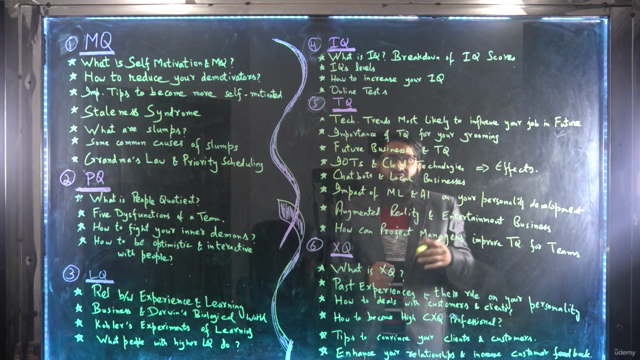 ① MQ
★ What is Self Motivation & MQ?
★ How to reduce your demotivators?
★ Imp. Tips to become more self-motivated
★ Staleness Syndrome
★ What are slumps?
★ Some common causes of slumps
★ Grandma's Law & Priority Scheduling
② PQ
★ What is People Quotient?
★ Five Dysfunctions of a Team.
★ How to fight your inner demons?
★ How to be optimistic & interactive
with people?
③ LQ
★ Rel b/w Experience & Learning
★ Business & Darwin's Biological World
★ Kohler's Experiments of Learning
★ What people with higher LQ do?
④ IQ
★ What is IQ? Breakdown of IQ Scores
★ IQs levels
★ How to increase your IQ
★ Online Tests
⑤ TQ
★ Tech. Trends Most likely to influence your job in Future
★ Importance of TQ for your grooming
★ Future Business & TQ
★ IOTs & Cloud Technologies ⇒ Effects.
★ Chatbots & Local Businesses
★ Impact of ML & AI on your personality development
★ Augmented Reality & Entertainment Business
★ How can Project Managers improve TQ for Teams
⑥ XQ
★ What is XQ?
★ Past Experiences & their role on your personality
★ How to deals with customers & clients?
★ How to become High CXQ Professional?
★ Tips to convince your clients & customers.
★ Enhance your relationships & increase customer feedback
udemy